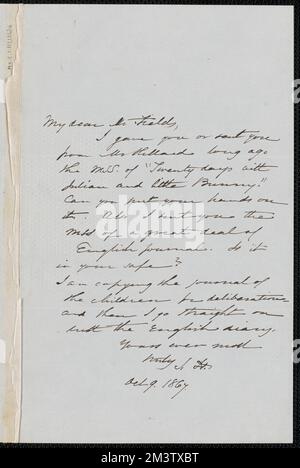 My dear Mr Fields,
I gave you or sent you
from Mr Hillard long ago
the M.S. of "Twenty days with
Julian and little Bunny."
Can you put your hands on
it. Also I sent you the
MSS of a great deal of
English Journal. Is it
in your safe?
I am copying the journal of
the children for deliberation
and then I go straight on
with the English diary.
Yours ever most
truly S. H.
Oct 9. 1867.
alamy
Image ID: 2M3TXBT
www.alamy.com